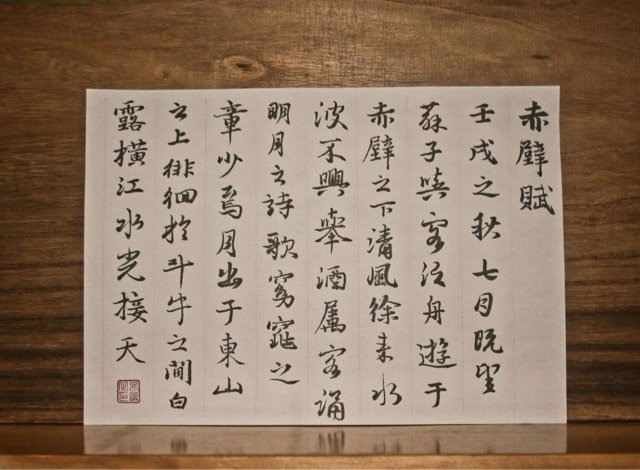 赤壁賦
壬戌之秋七月既望
蘇子與客泛舟遊于
赤壁之下清風徐来水
波不興舉酒属客誦
明月之詩歌窈窕之
章少焉月出于東山
之上徘徊於斗牛之間白
露橫江水光接天